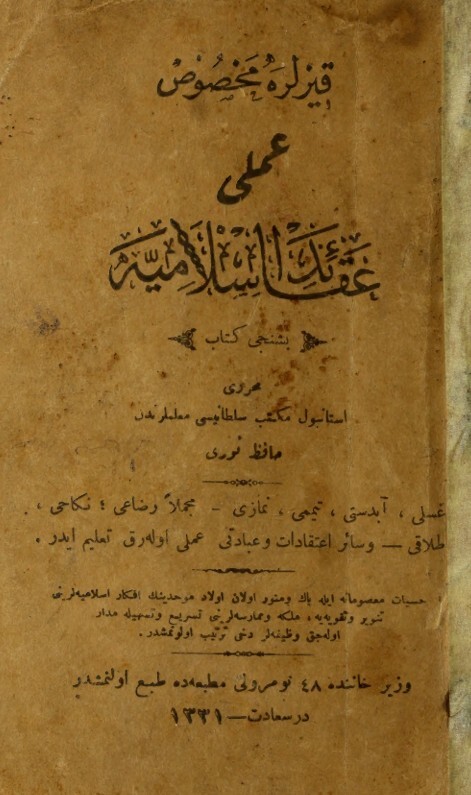 قیزلره مخصوص
عملی
عقائد اسلامیه
بشنجی کتاب
محرری
استانبول مکتب سلطانیسی معلملرندن
حافظ نوری
غسلی ، آبدستی ، تیممی ، نمازی – مجملاً رضاعی ؛ نکاحی ،
طلاقی – وسائر اعتقادات وعباداتی عملی اوله‌رق تعلیم ایدر .
حسیات معصومانه ایله پاك ومنور اولان اولاد موحدینك افکار اسلامیه‌لرینی
تنویر وتقویه‌یه ، ملکه وممارسه‌لرینی تسریع وتسهیله مدار
اوله‌جق وظیفه‌لر دخی ترتیب اولونمشدر.
وزیر خاننده ٤٨ نومرولی مطبعه‌ده طبع اولنمشدر
درسعادت – ١٣٣١